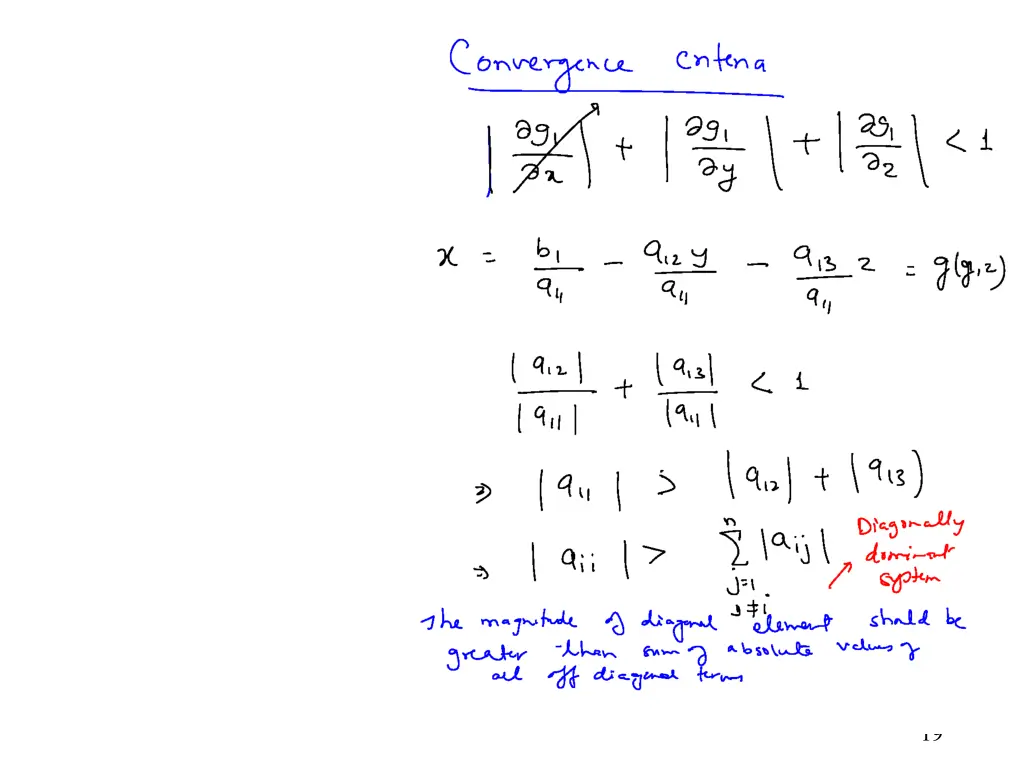 Convergence criteria
|∂g₁/∂x| + |∂g₁/∂y| + |∂g₁/∂z| < 1
x = b₁/a₁₁ − a₁₂ y/a₁₁ − a₁₃/a₁₁ z = g(y,z)
|a₁₂|/|a₁₁| + |a₁₃|/|a₁₁| < 1
⇒ |a₁₁| > |a₁₂| + |a₁₃|
⇒ |aᵢᵢ| > ∑ⁿ j=1 j≠i |aᵢⱼ|
Diagonally
dominant
system
The magnitude of diagonal element should be
greater than sum of absolute values of
all off diagonal terms
19